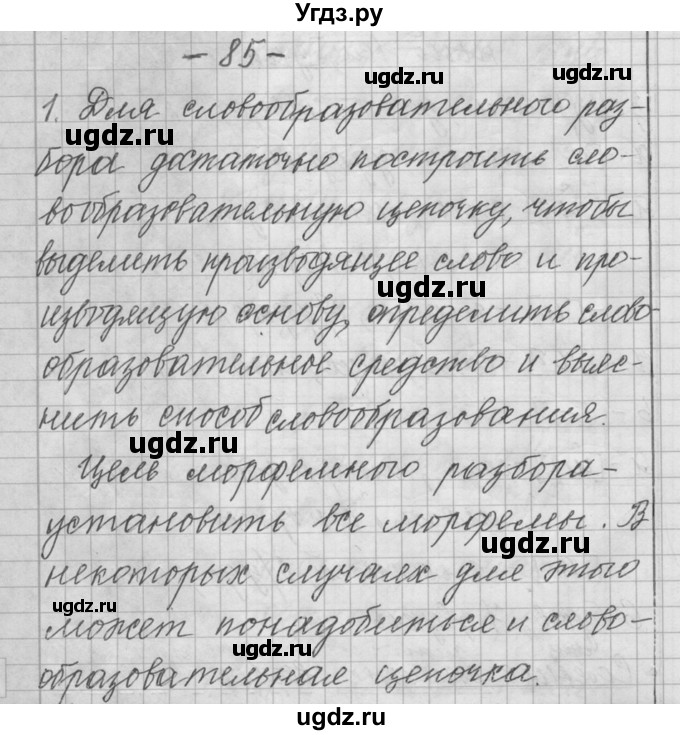 Угдз.ру
- 85 -
ugdz.ru ugdz.ru
1. Для словообразовательного раз-
ugdz.ru
бора достаточно построить сло-
ugdz.ru
вообразовательную цепочку, чтобы
выделить производящее слово и про-
ugdz.ru
изводящую основу, определить слово-
образовательное средство и выяс-
нить способ словообразования.
ugdz.ru
Цель морфемного разбора -
установить все морфемы. В
ugdz.ru
некоторых случаях для этого
ugdz.ru
может понадобиться и слово-
ugdz.ru
образовательная цепочка.
ugdz.ru